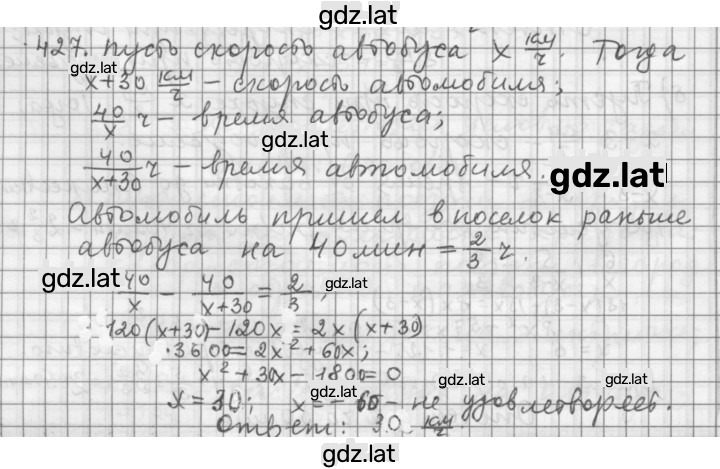 gdz.lat
427. Пусть скорость автобуса x км/ч. Тогда
gdz.lat
x+30 км/ч – скорость автомобиля;
40/x ч – время автобуса;
gdz.lat
40/(x+30) ч – время автомобиля.
gdz.lat
Автомобиль пришел в поселок раньше
автобуса на 40 мин = 2/3 ч.
gdz.lat
40/x – 40/(x+30) = 2/3;
gdz.lat
120(x+30) – 120x = 2x(x+30)
3600 = 2x² + 60x;
x² + 30x – 1800 = 0
gdz.lat
gdz.lat
x = 30; x = – 60 – не удовлетворяет.
gdz.lat
Ответ: 30 км/ч.
gdz.lat